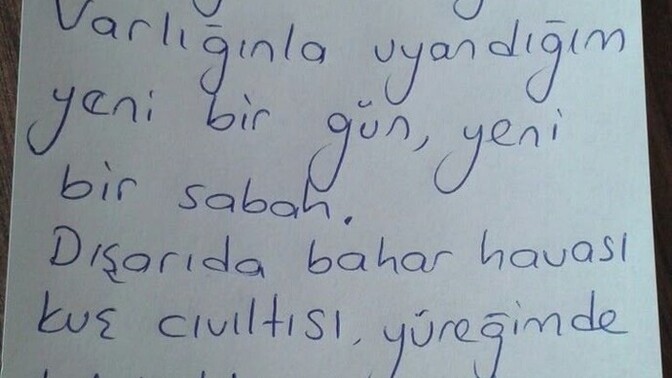 Varlığınla uyandığım
yeni bir gün, yeni
bir sabah.
Dışarıda bahar havası
kuş cıvıltısı, yüreğimde